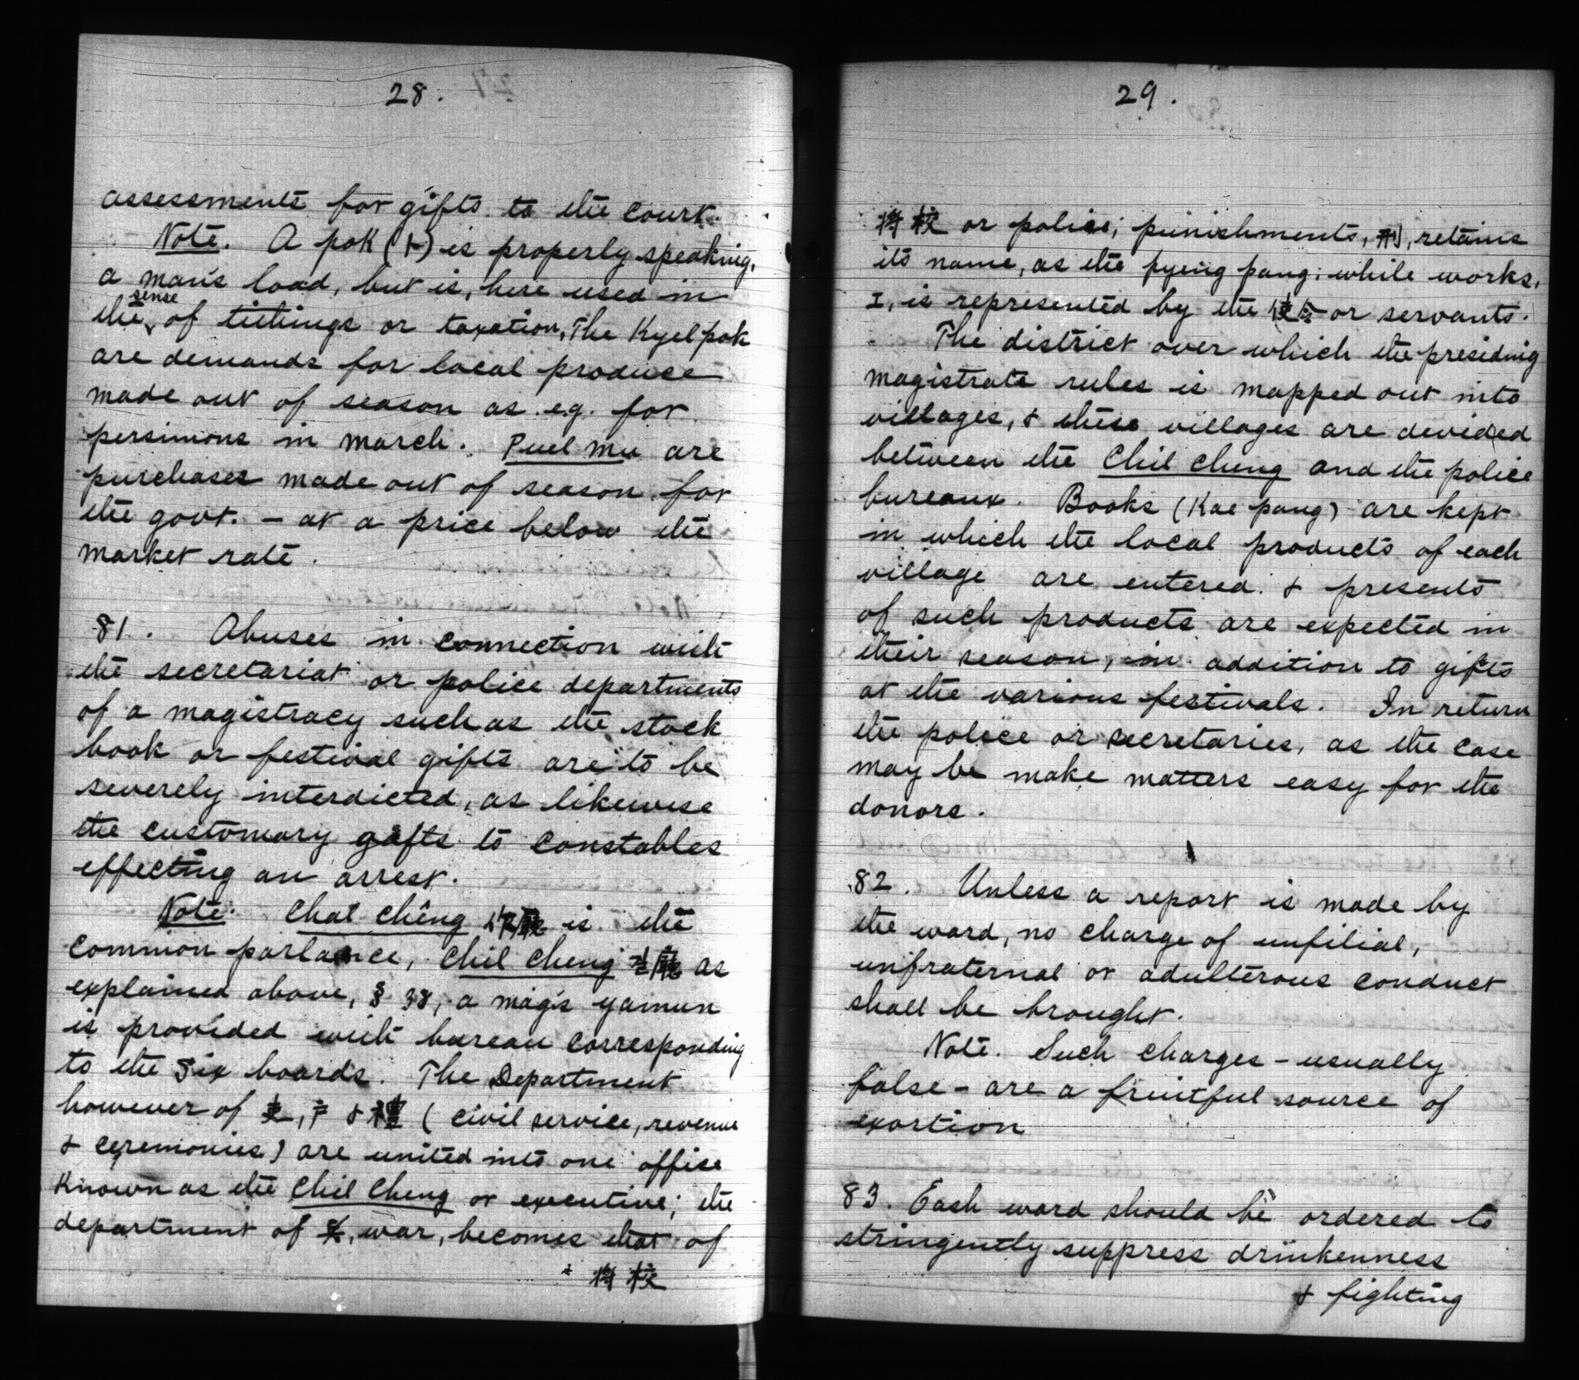 28.
assessments for gifts to the court.
Note. A pok (卜) is properly speaking,
a man's load, but is, here used in
the sense of tithings or taxation, The Kyel pok
are demands for local produce
made out of season as e.g. for
persimons in march. Puel mu are
purchases made out of season for
the govt. - at a price below the
market rate.
81. Abuses in connection with
the secretariat or police departments
of a magistracy such as the stock
book or festival gifts are to be
severely interdicted, as likewise
the customary gifts to constables
effecting an arrest.
Note. Chal Chêng 作廳 is the
common parlance, Chil Cheng 廳 as
explained above, § 38, a mag's yamun
is provided with bureau corresponding
to the Six boards. The Department
however of 吏, 戶 & 禮 (civil service, revenue
& ceremonies) are united into one office
Known as the Chil Cheng or executive; the
department of 兵, war, becomes that of
将校
29.
将校 or police; punishments, 刑, retains
its name, as the hyeng pang; while works,
工, is represented by the 使令 or servants.
The district over which the presiding
magistrate rules is mapped out into
villages, & these villages are devided
between the Chil Cheng and the police
bureaux. Books (Kae pang) are kept
in which the local products of each
village are entered & presents
of such products are expected in
their season, in addition to gifts
at the various festivals. In return
the police or secretaries, as the case
may be make matters easy for the
donors.
82. Unless a report is made by
the ward, no charge of unfilial,
unfraternal or adulterous conduct
shall be brought.
Note. Such charges - usually
false - are a fruitful source of
exortion
83. Each ward should be ordered to
stringently suppress drinkenness
& fighting